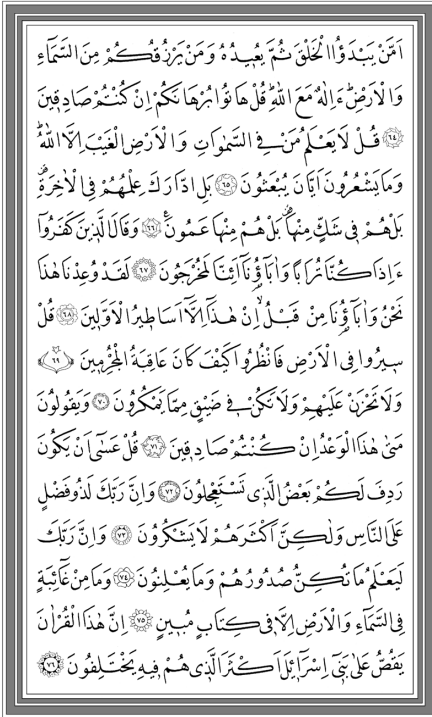 اَمَّنْ يَبْدَؤُا الْخَلْقَ ثُمَّ يُعِيدُهُ وَمَنْ يَرْزُقُكُمْ مِنَ السَّمَاءِ
وَالْاَرْضِ ءَاِلٰهٌ مَعَ اللّٰهِ قُلْ هَاتُوا بُرْهَانَكُمْ اِنْ كُنْتُمْ صَادِقِينَ
﴿٦٤﴾ قُلْ لَا يَعْلَمُ مَنْ فِي السَّمٰوَاتِ وَالْاَرْضِ الْغَيْبَ اِلَّا اللّٰهُ
وَمَا يَشْعُرُونَ اَيَّانَ يُبْعَثُونَ ﴿٦٥﴾ بَلِ ادَّارَكَ عِلْمُهُمْ فِي الْاٰخِرَةِ
بَلْ هُمْ فِي شَكٍّ مِنْهَا بَلْ هُمْ مِنْهَا عَمُونَ ﴿٦٦﴾ وَقَالَ الَّذِينَ كَفَرُوا
ءَاِذَا كُنَّا تُرَابًا وَاٰبَاؤُنَا اَئِنَّا لَمُخْرَجُونَ ﴿٦٧﴾ لَقَدْ وُعِدْنَا هٰذَا
نَحْنُ وَاٰبَاؤُنَا مِنْ قَبْلُ اِنْ هٰذَا اِلَّا اَسَاطِيرُ الْاَوَّلِينَ ﴿٦٨﴾ قُلْ
سِيرُوا فِي الْاَرْضِ فَانْظُرُوا كَيْفَ كَانَ عَاقِبَةُ الْمُجْرِمِينَ ﴿٦٩﴾
وَلَا تَحْزَنْ عَلَيْهِمْ وَلَا تَكُنْ فِي ضَيْقٍ مِمَّا يَمْكُرُونَ ﴿٧٠﴾ وَيَقُولُونَ
مَتٰى هٰذَا الْوَعْدُ اِنْ كُنْتُمْ صَادِقِينَ ﴿٧١﴾ قُلْ عَسٰى اَنْ يَكُونَ
رَدِفَ لَكُمْ بَعْضُ الَّذِي تَسْتَعْجِلُونَ ﴿٧٢﴾ وَاِنَّ رَبَّكَ لَذُو فَضْلٍ
عَلَى النَّاسِ وَلٰكِنَّ اَكْثَرَهُمْ لَا يَشْكُرُونَ ﴿٧٣﴾ وَاِنَّ رَبَّكَ
لَيَعْلَمُ مَا تُكِنُّ صُدُورُهُمْ وَمَا يُعْلِنُونَ ﴿٧٤﴾ وَمَا مِنْ غَائِبَةٍ
فِي السَّمَاءِ وَالْاَرْضِ اِلَّا فِي كِتَابٍ مُبِينٍ ﴿٧٥﴾ اِنَّ هٰذَا الْقُرْاٰنَ
يَقُصُّ عَلٰى بَنِي اِسْرَائِلَ اَكْثَرَ الَّذِي هُمْ فِيهِ يَخْتَلِفُونَ ﴿٧٦﴾